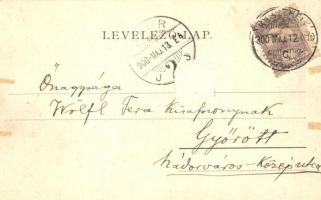 LEVELEZŐLAP.
900 MAJ. 13
Őnagysága
Wölfl Fera Kisasszonynak
Győrött
Nádorváros-Középutca